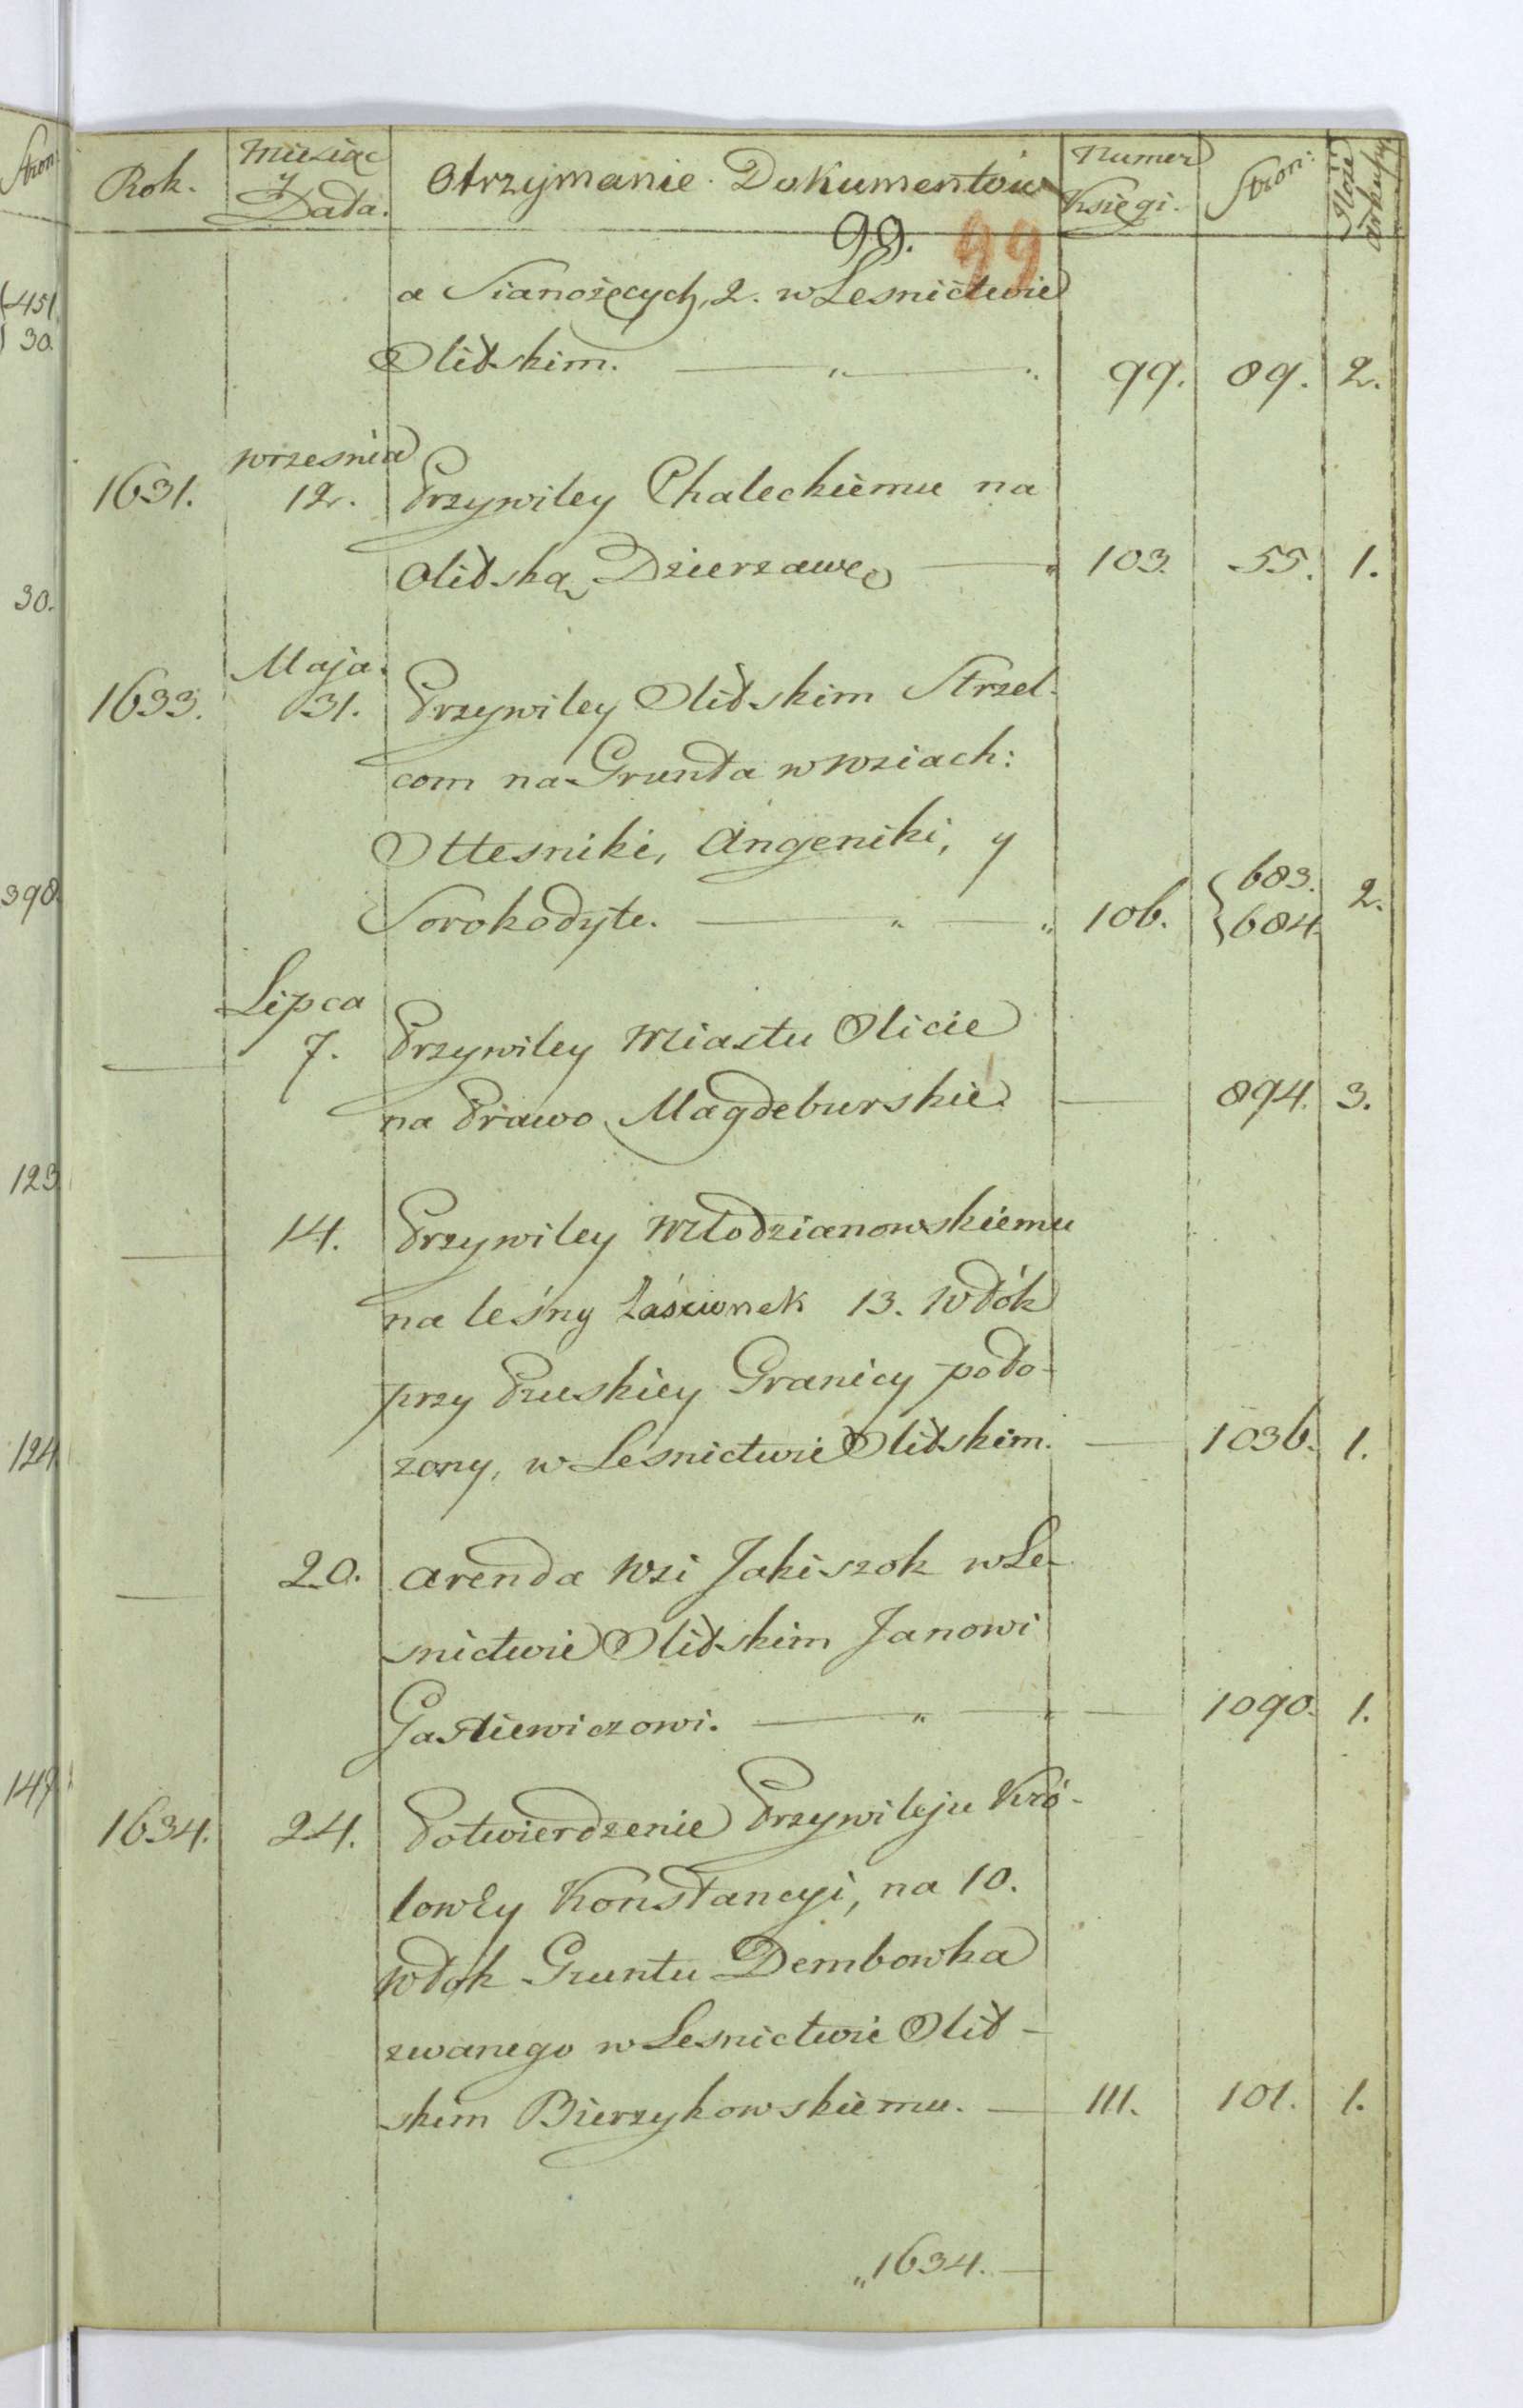 Stron:
(451.
) 30.
30.
398.
123
124
147
Rok. Miesiąc y Data. Otrzymanie Dokumentów Numer Księgi. Stron: Ilość Arkuszy
99. 99
a Sianożęcych, 2. w Lesnictwie
Olitskim. 99. 89. 2.
wrzesnia
1631. 12. Przywiley Chaleckiemu na
Olitską Dzierzawę 103. 55. 1.
Maja.
1633. 31. Przywiley Olitskim Strzel-
com na Grunta w wsiach:
Ottesniki, Angeniki, y 683.
Sorokodyte. 106. 684. 2.
Lipca
7. Przywiley Miastu Olicie
na Prawo Magdeburskie. 894. 3.
14. Przywiley Młodzianowskiemu
na leśny Zaścionek 13. Włók
przy Pruskiey Granicy poło-
zony, w Lesnictwie Olitskim. 1036. 1.
20. Arenda wsi Jakiszok w Le-
snictwie Olitskim Janowi
Gastiewiczowi. 1090. 1.
1634. 24. Potwierdzenie Przywileju Kró-
lowey Konstancyi, na 10.
Włok Gruntu Dembowka
zwanego w Lesnictwie Olit-
skim Bierzykowskiemu. 111. 101. 1.
„1634.